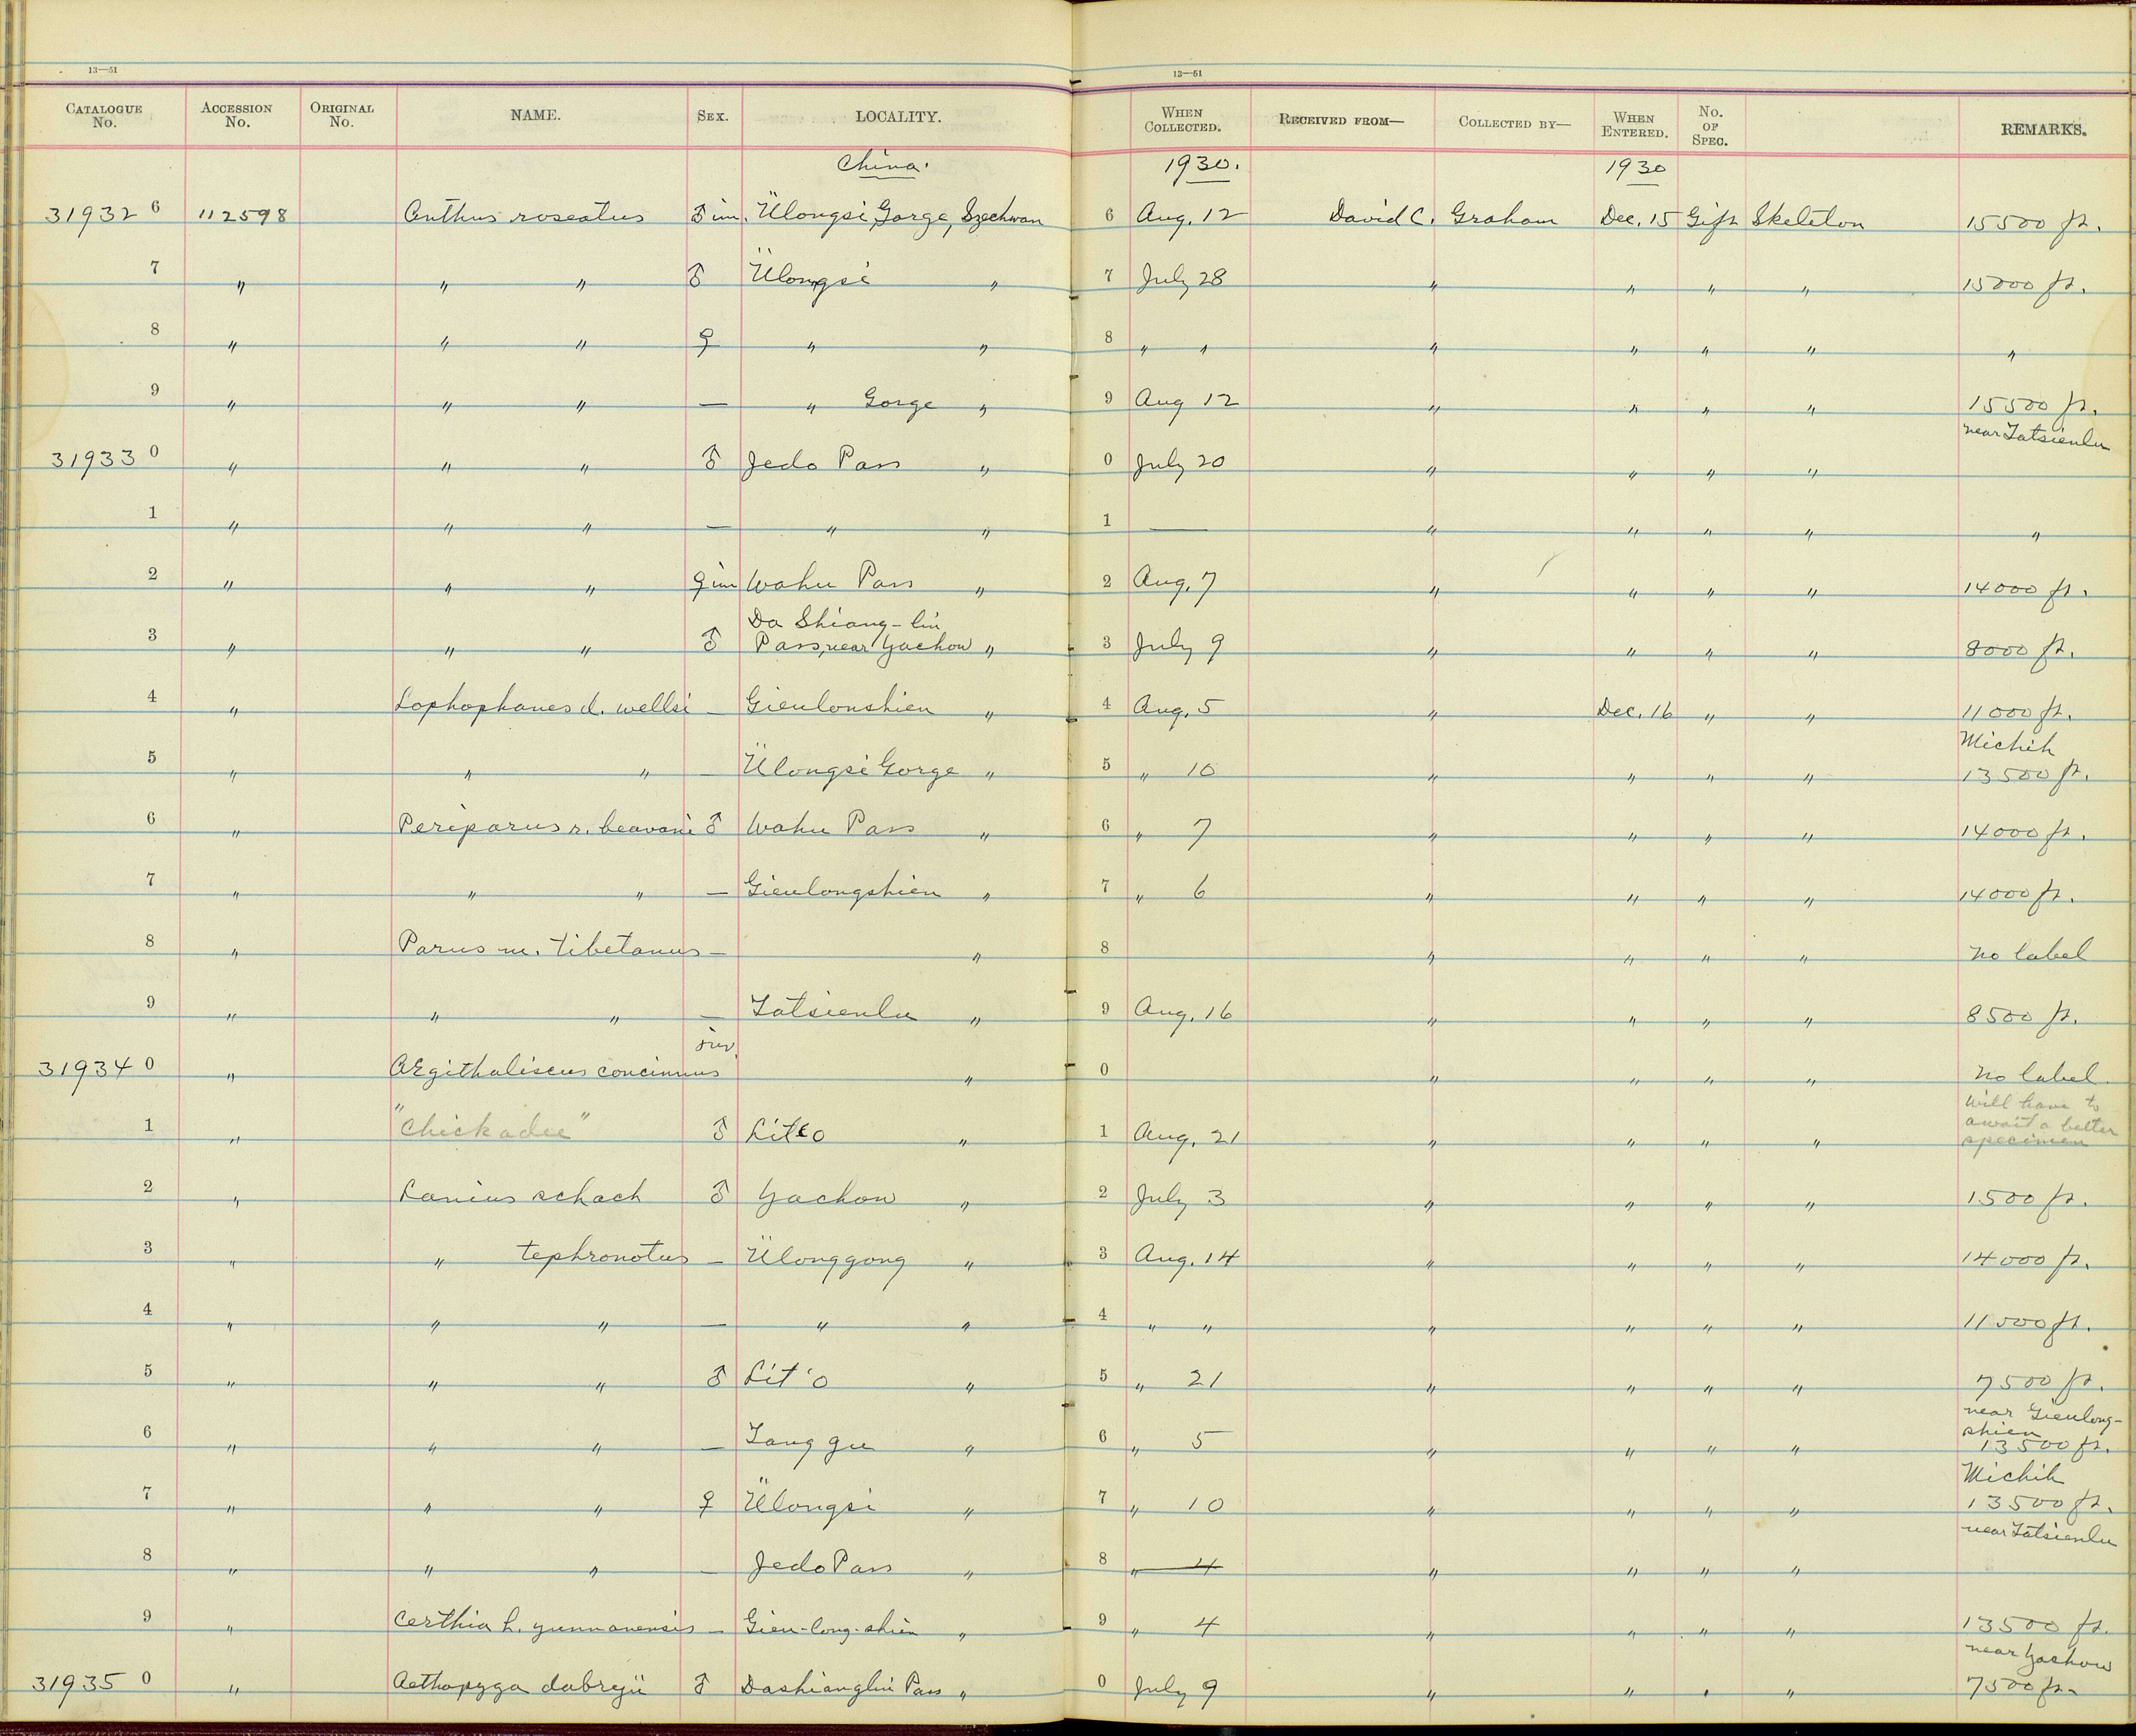 13—51 13—51
CATALOGUE No. ACCESSION No. ORIGINAL No. NAME. SEX. LOCALITY. WHEN COLLECTED. RECEIVED FROM— COLLECTED BY— WHEN ENTERED. No. OF SPEC. REMARKS.
China. 1930. 1930
31932 6 112598 Anthus roseatus ♂ im. Ülongsi Gorge, Szechwan 6 Aug. 12 David C. Graham Dec. 15 Gift Skeleton 15500 ft.
7 " " " ♂ Ülongsi " 7 July 28 " " " " 15000 ft.
8 " " " ♀ " " 8 " " " " " " "
9 " " " — " Gorge " 9 Aug 12 " " " " 15500 ft.
near Tatsienlu
31933 0 " " " ♂ Jedo Pass " 0 July 20 " " " "
1 " " " — " " 1 — " " " " "
2 " " " ♀ im Wahu Pass " 2 Aug. 7 " " " " 14000 ft.
Da Shiang-lin
3 " " " ♂ Pass, near Yachow " 3 July 9 " " " " 8000 ft.
4 " Lophophanes d. wellsi — Gieulonshien " 4 Aug. 5 " Dec. 16 " " 11000 ft.
Michih
5 " " " — Ülongsi Gorge " 5 " 10 " " " " 13500 ft.
6 " Periparus r. beavani ♂ Wahu Pass " 6 " 7 " " " " 14000 ft.
7 " " " — Gieulongshien " 7 " 6 " " " " 14000 ft.
8 " Parus m. tibetanus — " 8 " " " " no label
9 " " " — Tatsienlu " 9 Aug. 16 " " " " 8500 ft.
juv.
31934 0 " AEgithaliscus concinnus " 0 " " " " no label.
will have to
await a better
1 " "Chickadee" ♂ Lit'o " 1 Aug. 21 " " " " specimen
2 " Lanius schach ♂ Yachow " 2 July 3 " " " " 1500 ft.
3 " " tephronotus — Ülonggong " 3 Aug. 14 " " " " 14000 ft.
4 " " " — " " 4 " " " " " " 11000 ft.
5 " " " ♂ Lit'o " 5 " 21 " " " " 7500 ft.
near Gieulong-
shien
6 " " " — Tang gu " 6 " 5 " " " " 13500 ft.
Michih
7 " " " ♀ Ülongsi " 7 " 10 " " " " 13500 ft.
near Tatsienlu
8 " " " — Jedo Pass " 8 " 4 " " " "
9 " Certhia h. yunnanensis — Gien-long-shien " 9 " 4 " " " " 13500 ft.
near Yachow
31935 0 " Aethopyga dabryii ♂ Dashianglin Pass " 0 July 9 " " " " 7500 ft.